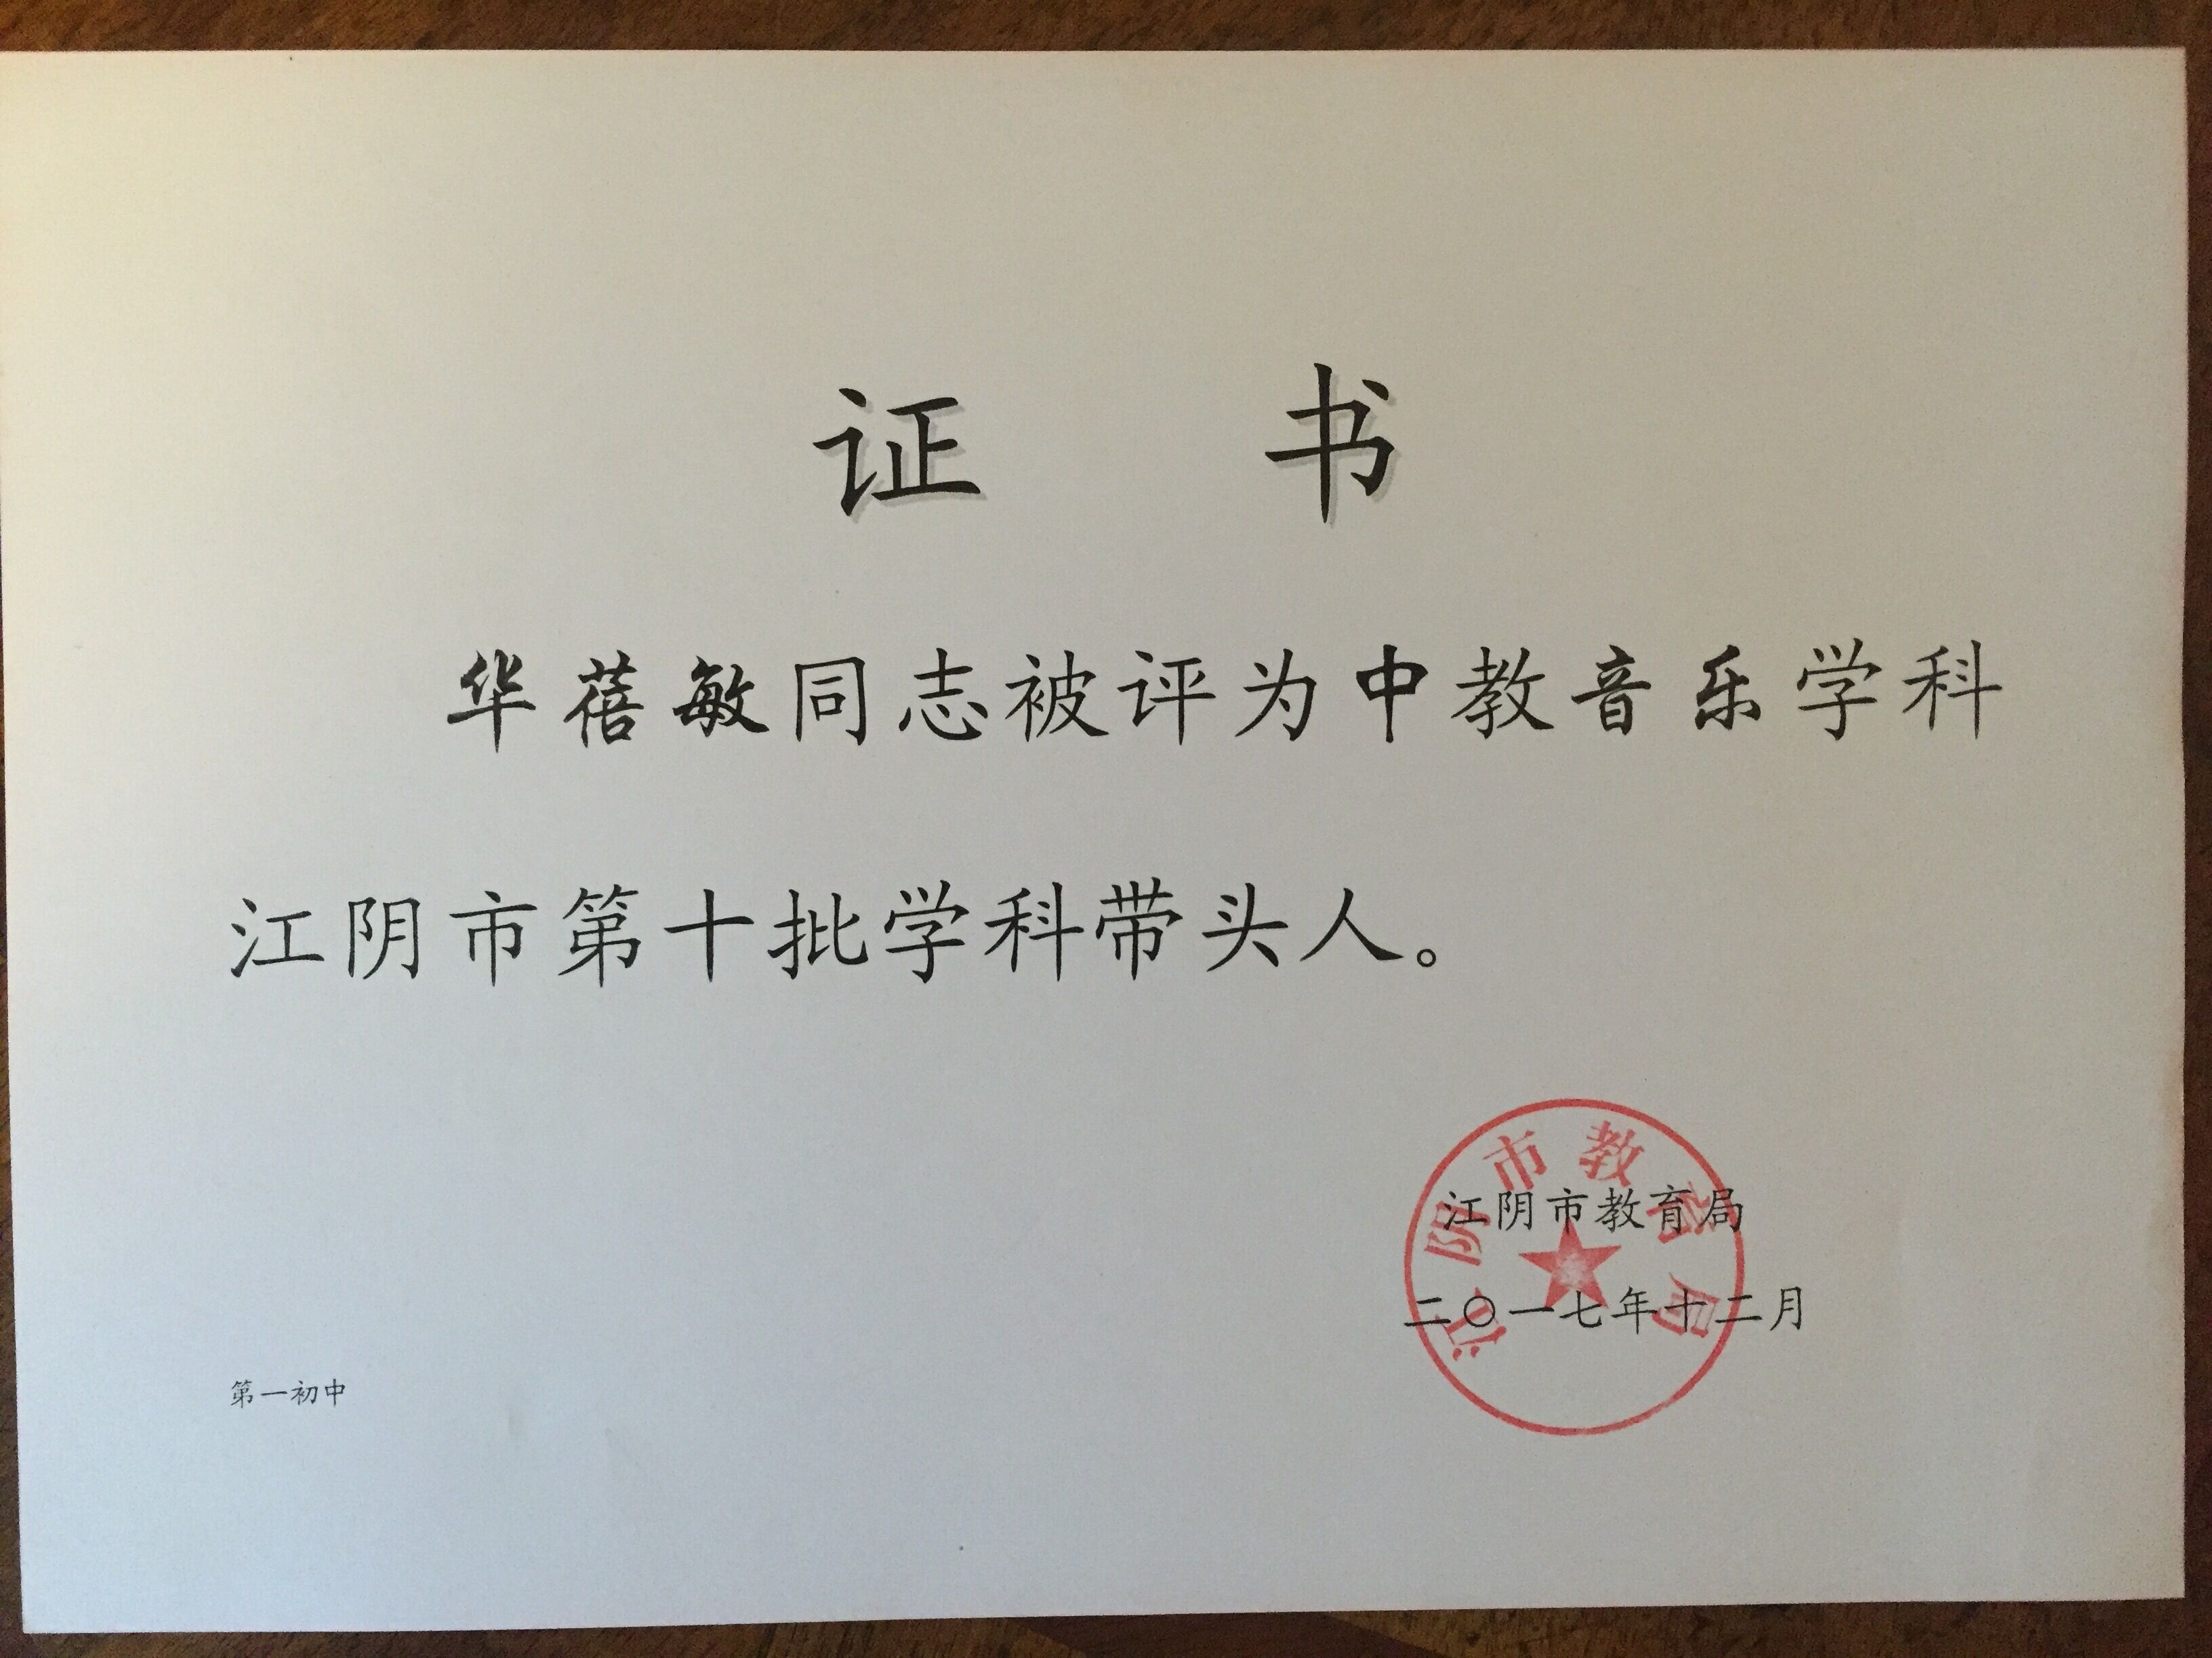 证 书
华蓓敏同志被评为中教音乐学科
江阴市第十批学科带头人。
江阴市教育局
江阴市教育局
二〇一七年十二月
第一初中